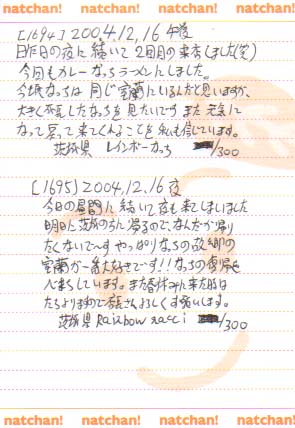 natchan! natchan! natchan! natchan!
[1694] 2004.12.16 午後
昨日の夜に続いて2回目の来店しました(笑)
今回もカレーなっちラーメンにしました。
今頃なっちは同じ室蘭にいるんだと思いますが、
大きく成長したなっちを見たいです また元気に
なって帰って来てくれることを私も信じています。
茨城県 レインボーなっち /300
[1695] 2004.12.16 夜
今日の昼間に続いて夜も来てしまいました
明日に茨城のうちに帰るのでなんだか帰り
たくないで〜す やっぱりなっちの故郷の
室蘭が一番大好きです!!なっちの復帰を
心待ちしています。また春休みに来た時は
たちよりますので皆さんよろしくお願いします。
茨城県 Rainbow nacci /300
natchan! natchan! natchan! natchan!